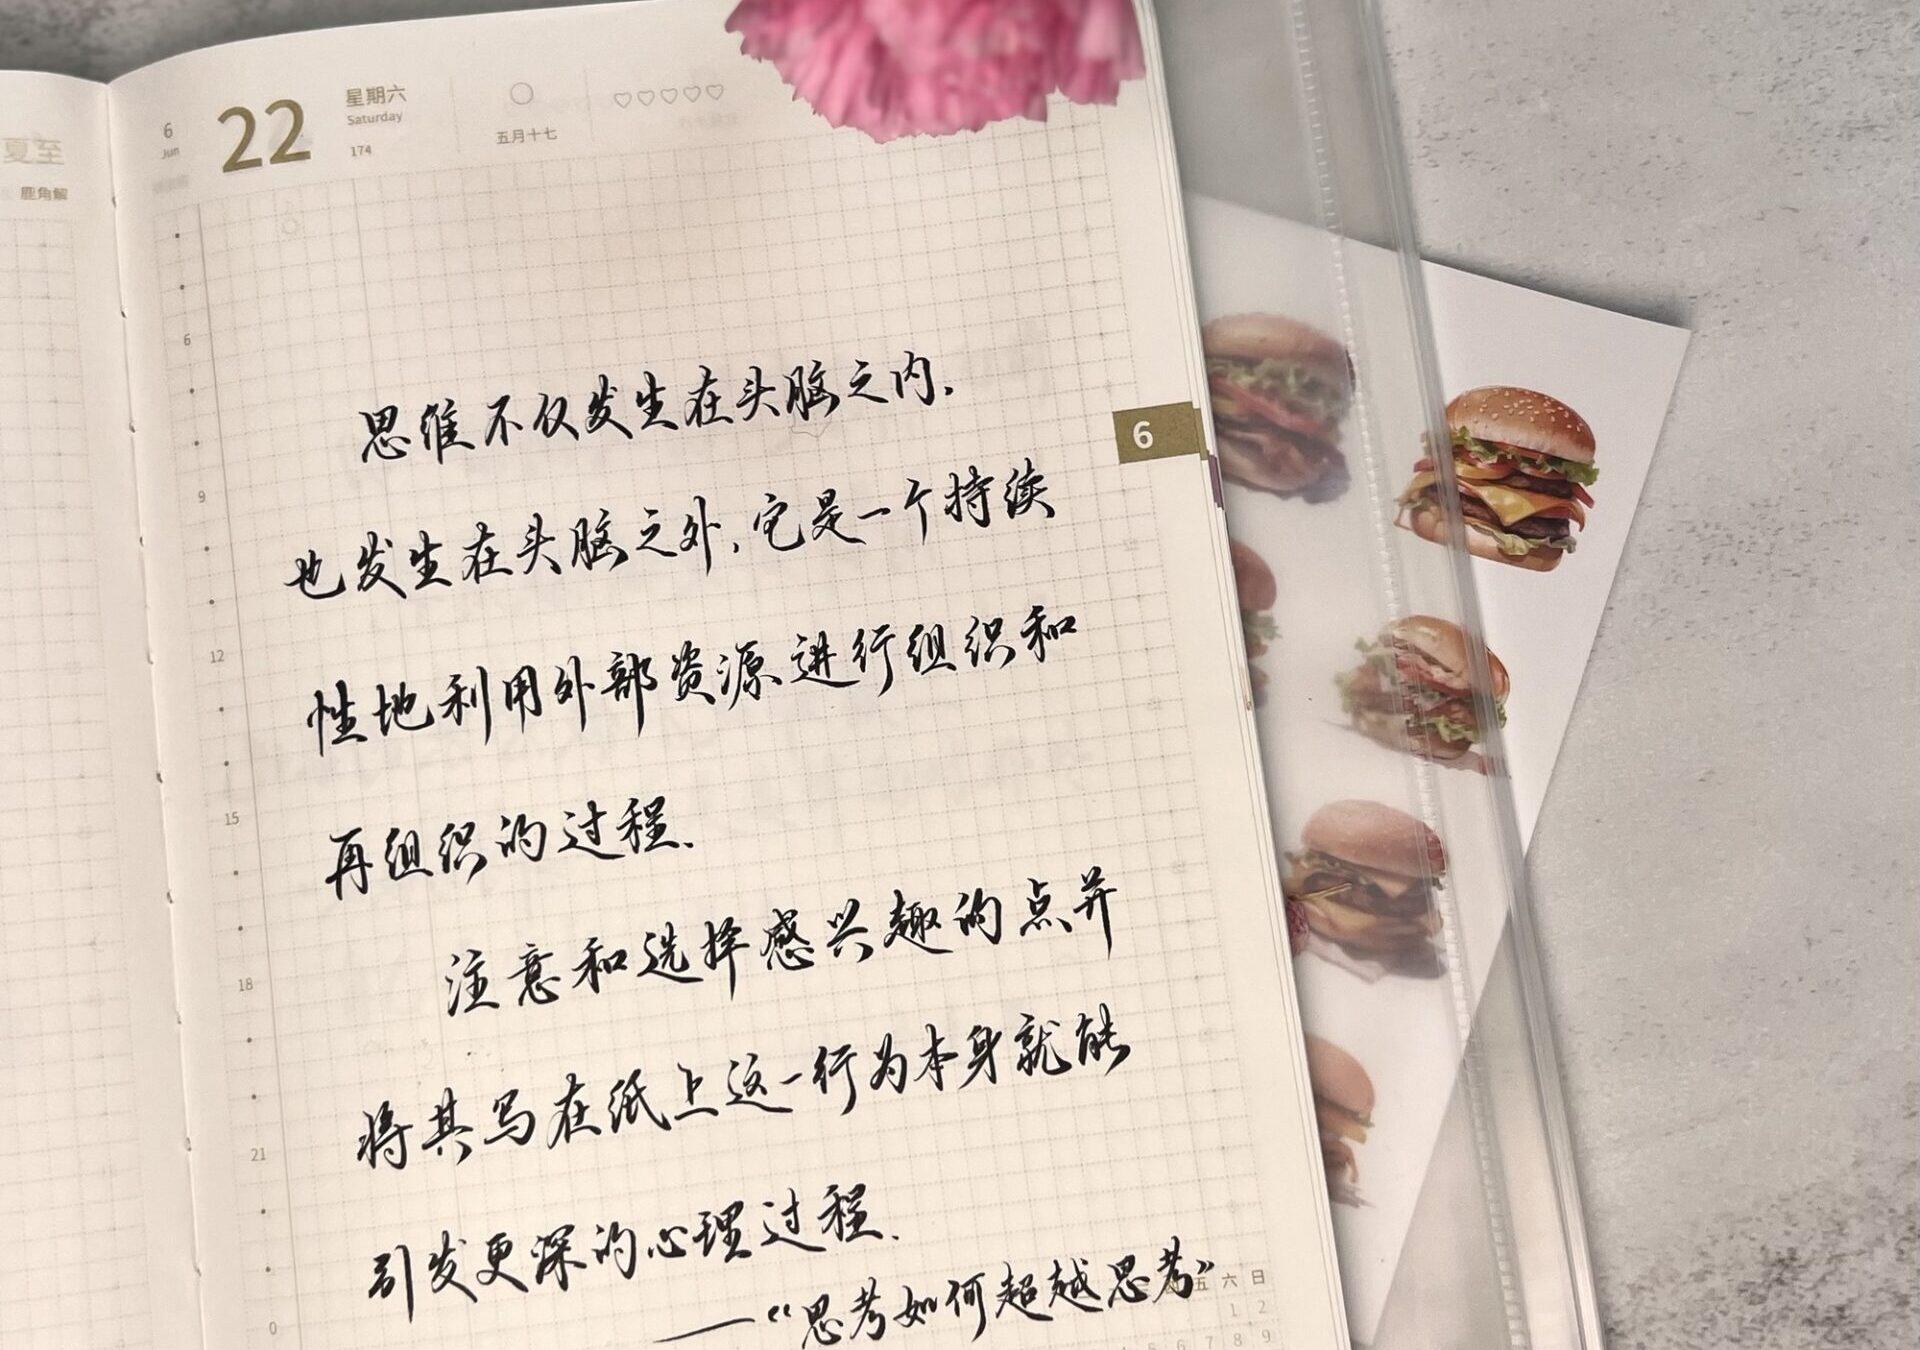 夏至
鹿角解
6
Jun
22
星期六
Saturday
174
五月十七
6
9
12
15
18
21
0
6
思维不仅发生在头脑之内.
也发生在头脑之外,它是一个持续
性地利用外部资源进行组织和
再组织的过程.
注意和选择感兴趣的点并
将其写在纸上这一行为本身就能
引发更深的心理过程.
——“思考如何超越思考”
五 六 日
1 2
5 6 7 8 9